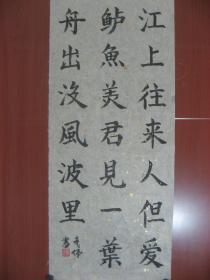 江上往来人但爱
鲈魚美君見一葉
舟出没風波里